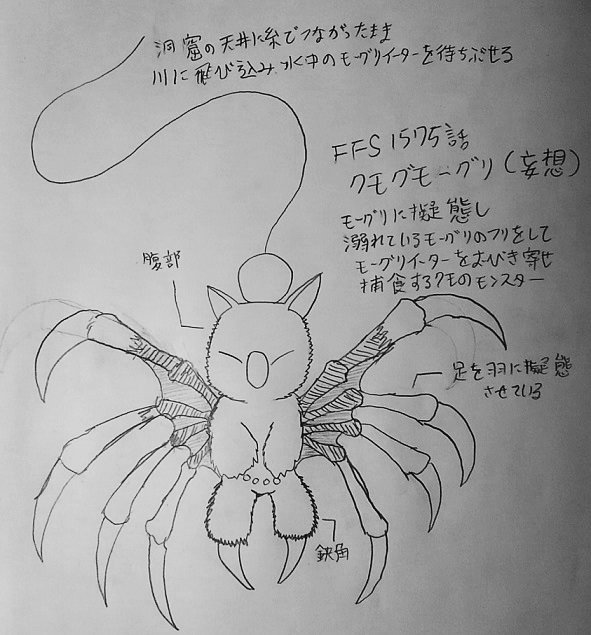 洞窟の天井に糸でつながったまま
川に飛び込み水中のモーグリイーターを待ちぶせる
FFS 1575話
クモグモーグリ(妄想)
モーグリに擬態し
溺れているモーグリのフリをして
モーグリイーターをおびき寄せ
捕食するクモのモンスター
腹部
足を羽に擬態
させている
鋏角